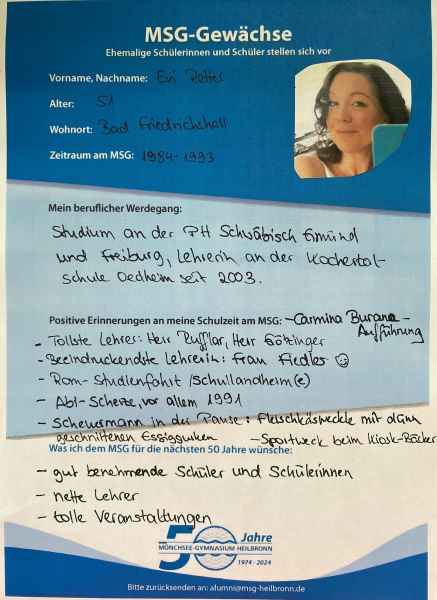 MSG-Gewächse
Ehemalige Schülerinnen und Schüler stellen sich vor
Vorname, Nachname: Evi
Alter: 51
Wohnort: Bad Friedrichshall
Zeitraum am MSG: 1984-1993
Mein beruflicher Werdegang:
Studium an der PH Schwäbisch Gmünd
und Freiburg, Lehrerin an der Kochertal-
schule Oedheim seit 2003.
Positive Erinnerungen an meine Schulzeit am MSG: - Carmina Burana -
Aufführung
- Tollste Lehrer: Herr Pufflar, Herr Göttinger
- Beeindruckendste Lehrerin: Frau Fiedler ☺
- Rom-Studienfahrt /Schullandheim(e)
- Abi-Scherze, vor allem 1991
- in der Pause: Fleischkäsweckle mit dünn
geschnittenen Essiggurken - Sportweck beim Kiosk-Bäcker
Was ich dem MSG für die nächsten 50 Jahre wünsche:
- gut benehmende Schüler und Schülerinnen
- nette Lehrer
- tolle Veranstaltungen
50 Jahre
MÖNCHSEE-GYMNASIUM HEILBRONN
1974 - 2024
Bitte zurücksenden an: alumni@msg-heilbronn.de